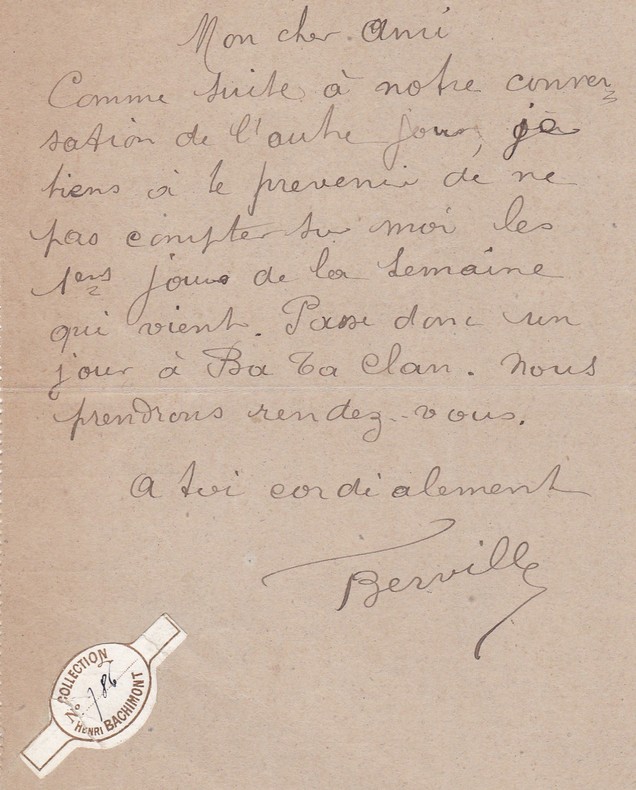 Mon cher Ami
Comme suite à notre conver
sation de l'autre jour, je
tiens à te prevenir de ne
pas compter sur moi les
1ers jours de la semaine
qui vient. Passe donc un
jour à Ba Ta Clan. Nous
prendrons rendez-vous.
A toi cordialement
Berville
COLLECTION
No. 786
HENRI BACHIMONT